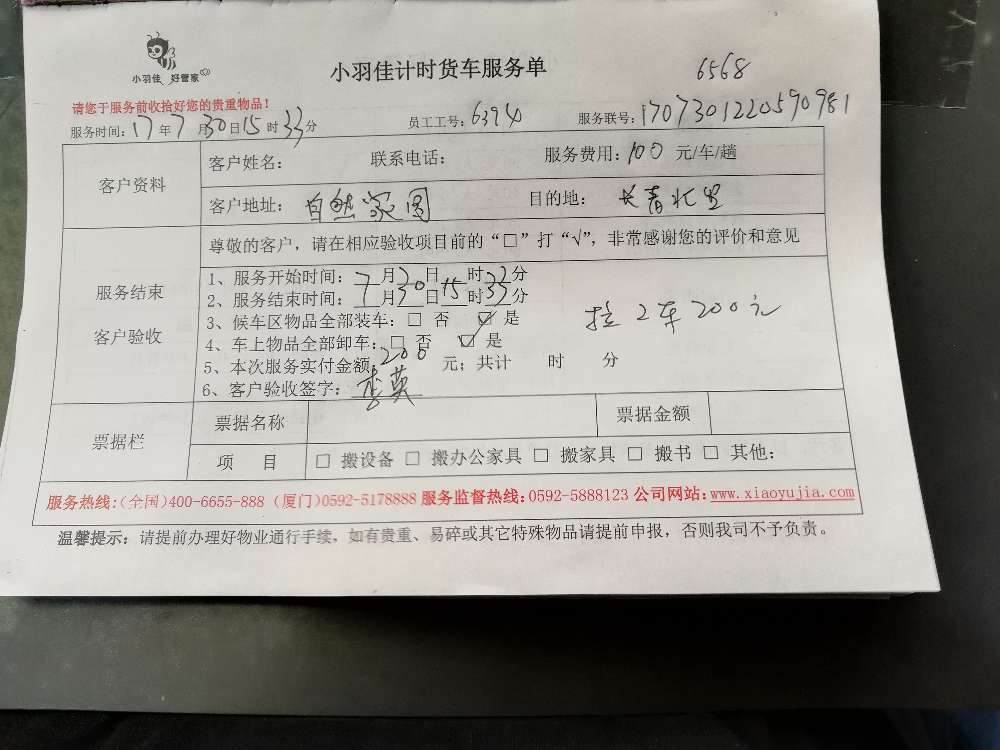 小羽佳 好管家
小羽佳计时货车服务单 6568
请您于服务前收拾好您的贵重物品！
服务时间：17年7月30日15时33分 员工工号：6394 服务联号：170730122059098​1
客户资料 客户姓名： 联系电话： 服务费用：100元/车/趟
客户地址：自然家园 目的地：长青北里
服务结束 客户验收
尊敬的客户，请在相应验收项目前的“□”打“√”，非常感谢您的评价和意见
1、服务开始时间：7月30日 时33分
2、服务结束时间：7月30日15时33分
3、候车区物品全部装车：□ 否 ☑ 是
拉2车200元
4、车上物品全部卸车：□ 否 ☑ 是
5、本次服务实付金额：200元；共计 时 分
6、客户验收签字：李英
票据栏 票据名称 票据金额
项 目 □ 搬设备 □ 搬办公家具 □ 搬家具 □ 搬书 □ 其他：
服务热线：(全国)400-6655-888 (厦门)0592-5178888 服务监督热线：0592-5888123 公司网站：www.xiaoyujia.com
温馨提示：请提前办理好物业通行手续，如有贵重、易碎或其它特殊物品请提前申报，否则我司不予负责。